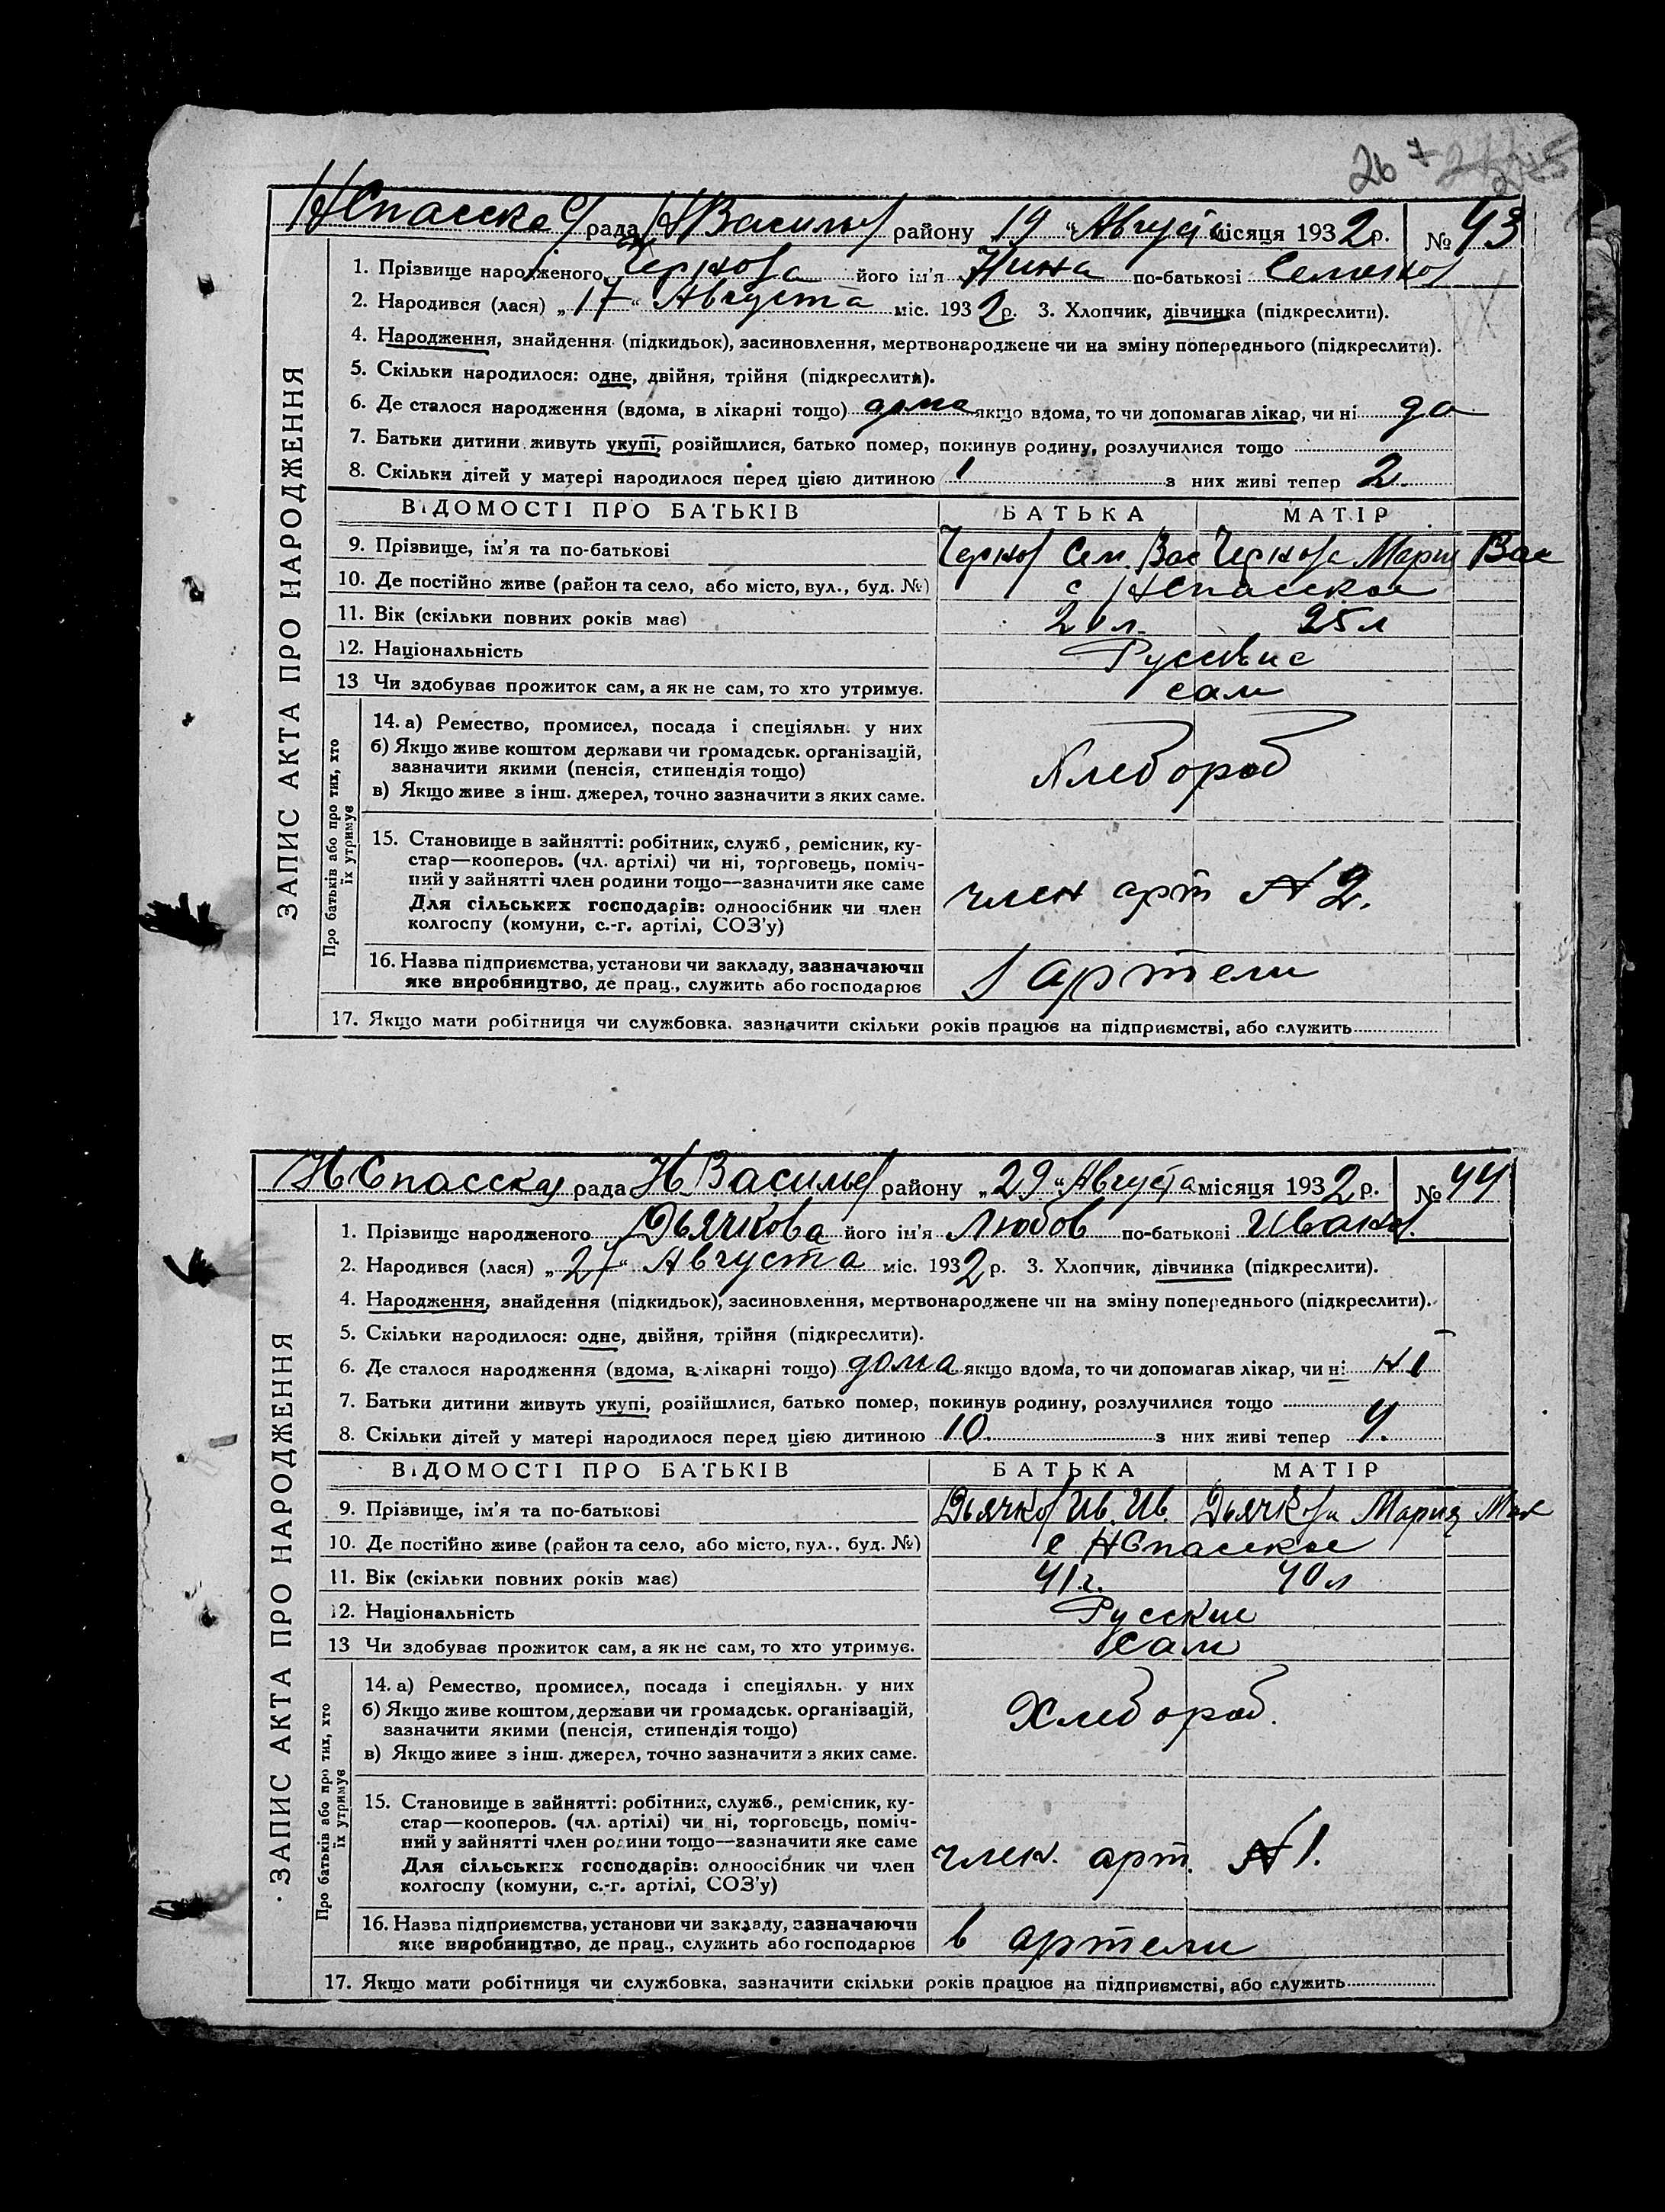 26
НСпасск рада НВасильев району „19“ Августа місяця 1932 р. № 43
1. Прізвище народженого його ім'я Нина по-батькові
2. Народився (лася) „17“ Августа міс. 1932 р. 3. Хлопчик, дівчинка (підкреслити).
4. Народження, знайдення (підкидьок), засиновлення, мертвонароджене чи на зміну попереднього (підкреслити).
5. Скільки народилося: одне, двійня, трійня (підкреслити).
6. Де сталося народження (вдома, в лікарні тощо) якщо вдома, то чи допомагав лікар, чи ні да
7. Батьки дитини живуть укупі, розійшлися, батько помер, покинув родину, розлучилися тощо
8. Скільки дітей у матері народилося перед цією дитиною 1 з них живі тепер 2
ВІДОМОСТІ ПРО БАТЬКІВ БАТЬКА МАТІР
9. Прізвище, ім'я та по-батькові Сем. Вас Мария Вас
10. Де постійно живе (район та село, або місто, вул., буд. №) с НСпасское
11. Вік (скільки повних років має) 25 л
12. Національність Русские
13 Чи здобував прожиток сам, а як не сам, то хто утримує. сам
14. а) Ремество, промисел, посада і спеціяльн. у них
б) Якщо живе коштом держави чи громадськ. організацій,
зазначити якими (пенсія, стипендія тощо) Хлебороб
в) Якщо живе з інш. джерел, точно зазначити з яких саме.
15. Становище в зайнятті: робітник, служб., ремісник, ку-
стар—кооперов. (чл. артілі) чи ні, торговець, поміч-
ний у зайнятті член родини тощо—зазначити яке саме
член арт № 2.
Для сільських господарів: одноосібник чи член
колгоспу (комуни, с.-г. артілі, СОЗ'у)
16. Назва підприємства, установи чи закладу, зазначаючи
яке виробництво, де прац., служить або господарює в артели
17. Якщо мати робітниця чи службовка, зазначити скільки років працює на підприємстві, або служить
ЗАПИС АКТА ПРО НАРОДЖЕННЯ
Про батьків або про тих, хто
їх утримує
НСпасску рада Н.Васильев району „29“ Августа місяця 1932 р. № 44
1. Прізвище народженого Дьячкова його ім'я Любов по-батькові Иванов.
2. Народився (лася) „27“ Августа міс. 1932 р. 3. Хлопчик, дівчинка (підкреслити).
4. Народження, знайдення (підкидьок), засиновлення, мертвонароджене чи на зміну попереднього (підкреслити).
5. Скільки народилося: одне, двійня, трійня (підкреслити).
6. Де сталося народження (вдома, в лікарні тощо) дома якщо вдома, то чи допомагав лікар, чи ні ні
7. Батьки дитини живуть укупі, розійшлися, батько помер, покинув родину, розлучилися тощо
8. Скільки дітей у матері народилося перед цією дитиною 10. з них живі тепер 4.
ВІДОМОСТІ ПРО БАТЬКІВ БАТЬКА МАТІР
9. Прізвище, ім'я та по-батькові Дьячков Ив. Ив. Дьячкова Мария Мих
10. Де постійно живе (район та село, або місто, вул., буд. №) с НСпасское
11. Вік (скільки повних років має) 41 г. 40 л
12. Національність Русские
13 Чи здобував прожиток сам, а як не сам, то хто утримує. Сам
14. а) Ремество, промисел, посада і спеціяльн. у них
б) Якщо живе коштом держави чи громадськ. організацій,
зазначити якими (пенсія, стипендія тощо) Хлебороб.
в) Якщо живе з інш. джерел, точно зазначити з яких саме.
15. Становище в зайнятті: робітник, служб., ремісник, ку-
стар—кооперов. (чл. артілі) чи ні, торговець, поміч-
ний у зайнятті член родини тощо—зазначити яке саме
член. арт. № 1.
Для сільських господарів: одноосібник чи член
колгоспу (комуни, с.-г. артілі, СОЗ'у)
16. Назва підприємства, установи чи закладу, зазначаючи
яке виробництво, де прац., служить або господарює в артели
17. Якщо мати робітниця чи службовка, зазначити скільки років працює на підприємстві, або служить
ЗАПИС АКТА ПРО НАРОДЖЕННЯ
Про батьків або про тих, хто
їх утримує